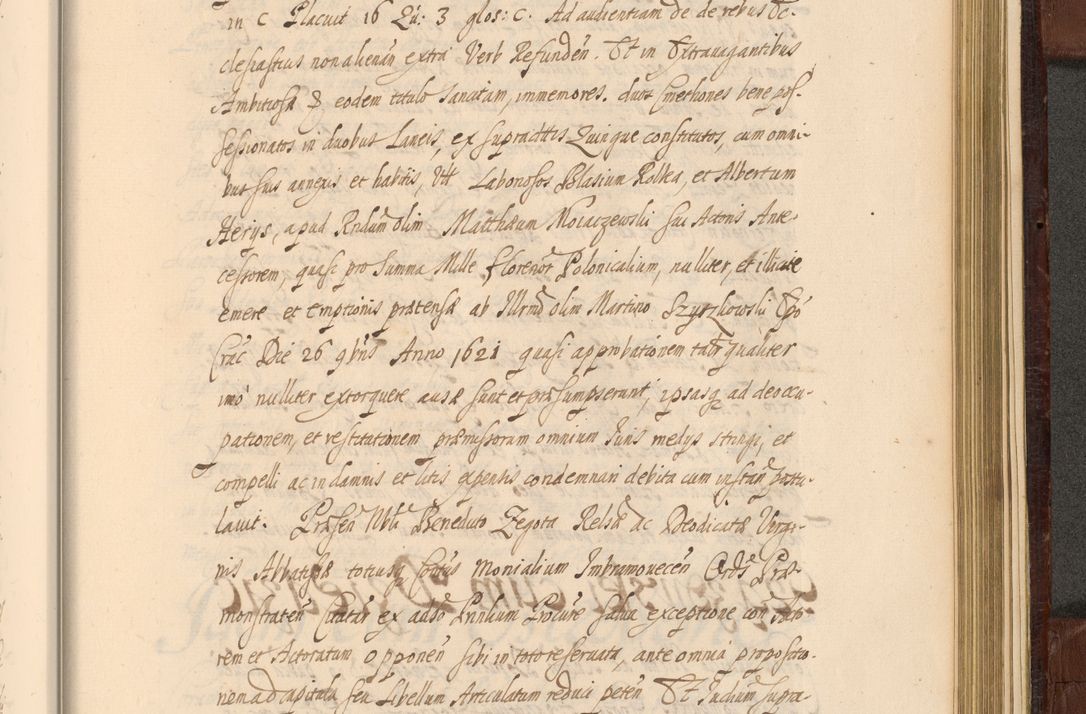 in C Placuit 16 Qu: 3 glos: C. Ad audientiam de de rebus Ec-
clesiasticis non alienan̄ extra Verb Refunden̄. Et in Extravagantibus
Ambitiosæ & eodem titulo sancitam, immemores. duos Cmethones bene pos-
sessionatos in duobus Laneis, ex supradictis Quinque constitutos, cum omni-
bus suis annexis et habitis, Vtt Laboriosos Blasium Rolka, et Albertum
Herys, apud Rndum olim Matthæum Mojaczewski sui Actoris Ante-
cessorem, quasi pro summa Mille florenor Polonicalium, nulliter, et illicite
emere et emptionis prætensæ ab Illrmo olim Martino Szyszkowski Epo
Crac Die 26 gbris Anno 1621 quasi approbationem talr qualiter
imo nulliter extorquere ausæ sunt et præsumpserunt, ipsasq ad deoccu-
pationem, et restitutionem præmissorum omnium Juris medys stringi, et
compelli ac in damnis et litis expensis condemnari debita cum instan̄ postu-
lavit. Præsen̄ Nbli Benedicto Zegota Relsæ ac Deodicatæ Virgi-
nis Abbatissæ totiusq Cœtus Monialium Imbramovecen̄ Ordis Præ-
monstraten̄ Citatar ex adso Prnlium Procure salva exceptione con Acto-
rem et Actoratum opponen̄ sibi in toto reservata, ante omnia propositio-
nem ad capitula seu Libellum Articulatum reduci peten̄ Et Judium supra